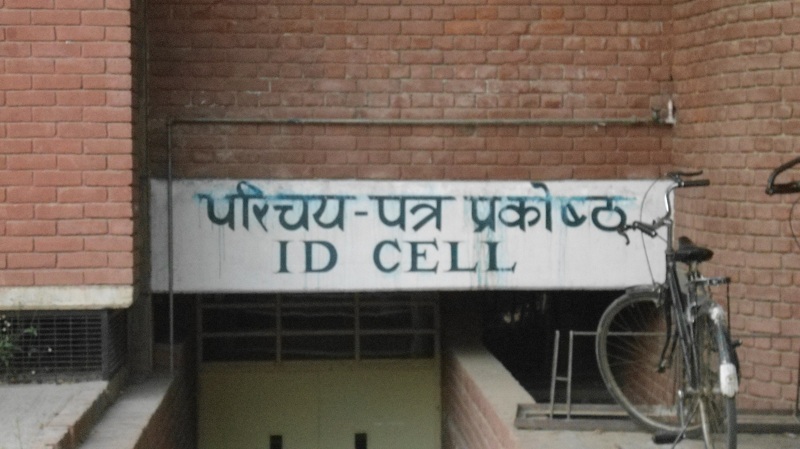 परिचय-पत्र प्रकोष्ठ
ID CELL